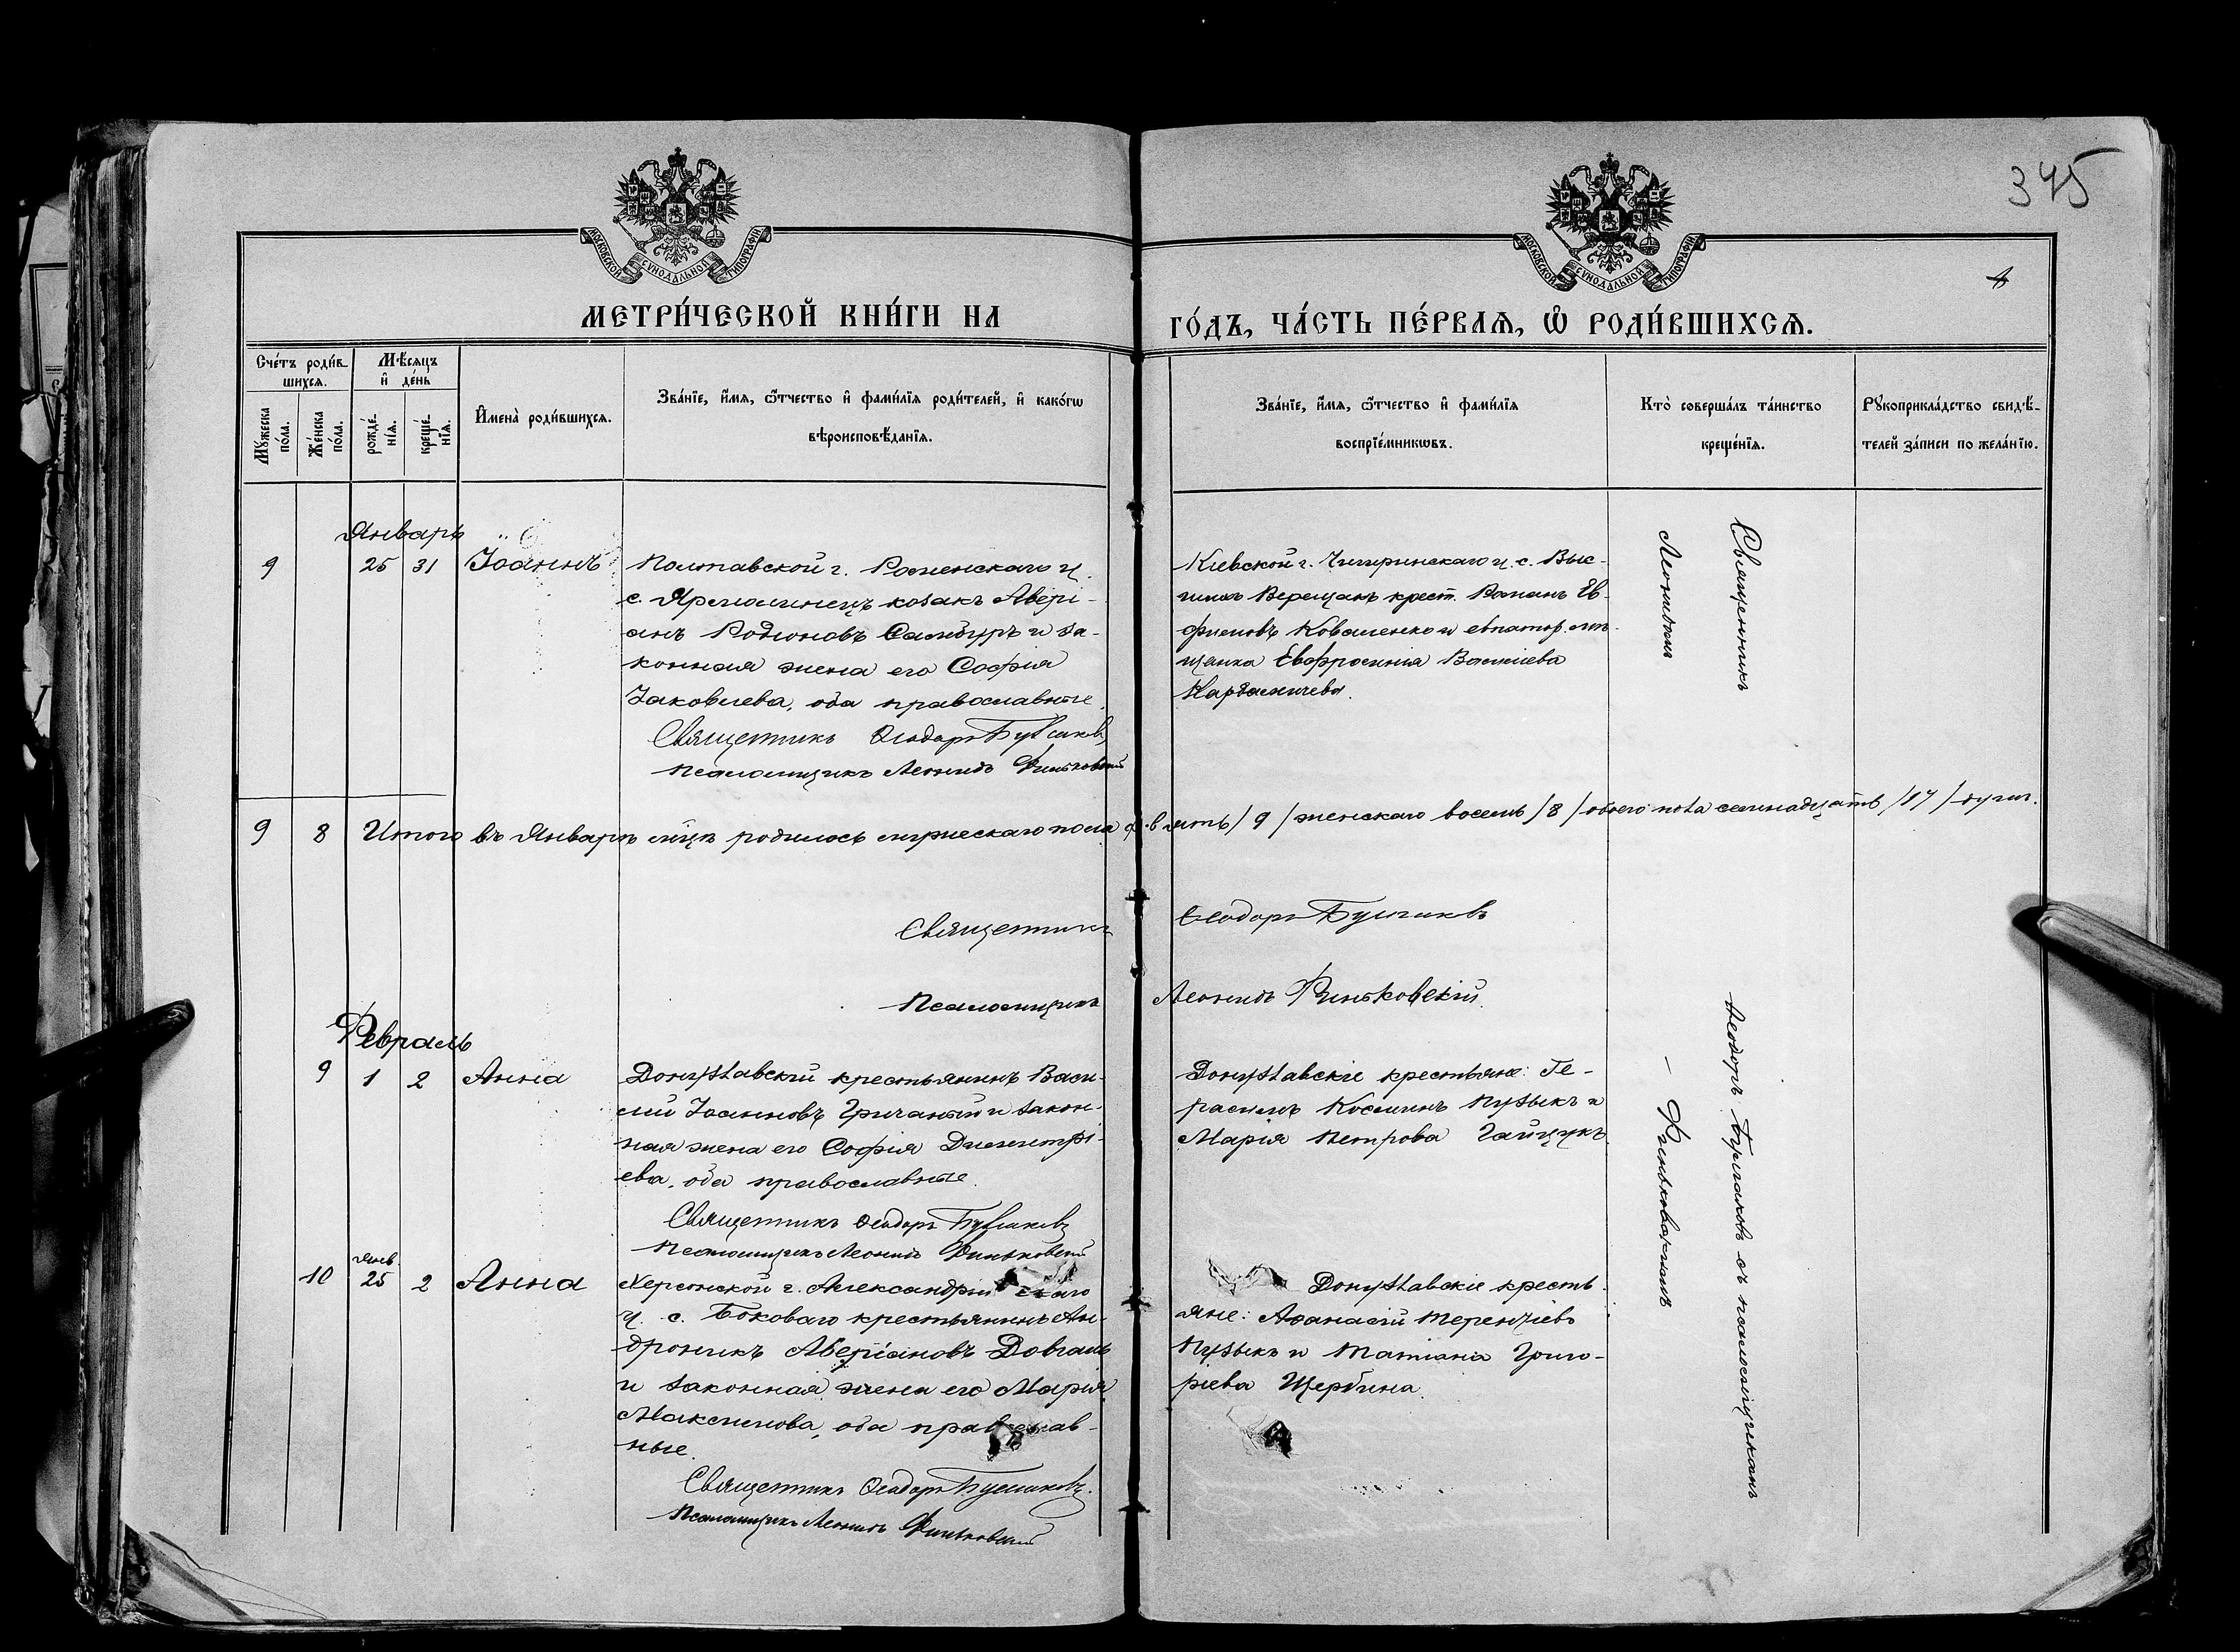 345
4
МОСКОВСКОЙ СѴНОДАЛЬНОЙ ТИПОГРАФІИ
МЕТРИ́ЧЕСКОЙ КНИ́ГИ НА
МОСКОВСКОЙ СѴНОДАЛЬНОЙ ТИПОГРАФІИ
ГО́ДЪ, ЧА́СТЬ ПЕ́РВАѦ, Ѡ҆ РОДИ́ВШИХСѦ.
Сче́тъ роди́в-
шихсѧ.
Мꙋ́жеска
по́ла.
Же́нска
по́ла.
Мѣ́сѧцъ
и҆ де́нь
рожде́-
нїѧ.
креще́-
нїѧ.
И҆мена̀ роди́вшихсѧ.
Зва́нїе, и҆́мѧ, ѻ҆́тчество и҆ фами́лїѧ роди́телей, и҆ како́гѡ
вѣроисповѣ́данїѧ.
Зва́нїе, и҆́мѧ, ѻ҆́тчество и҆ фами́лїѧ
воспрїе́мникѡвъ.
Кто̀ соверша́лъ та́инство
креще́нїѧ.
Рꙋкоприкла́дство свидѣ́-
телей за́писи по жела́нїю.
Январь
9 25 31 Іоаннъ
Полтавской г. Роменскаго у.
с. Ярмолинецъ козакъ Авері-
анъ Родіоновъ Самбуръ и за-
конная жена его Софія
Іаковлева, оба православные.
Священникъ Ѳеодоръ Булгаковъ
Псаломщикъ Леонидъ Финьковскій
Кіевской г. Чигиринскаго у. с. Выс-
шихъ Верещакъ крест. Романъ Ев-
фимовъ Коваленко и евпатор. мѣ-
щанка Евфросинія Васильева
Кардашичева.
9 8 Итого въ Январѣ мцѣ родилось мужескаго пола девять /9/ женскаго восемь /8/ обоего пола семнадцать /17/ душъ.
Священникъ Ѳеодоръ Булгаковъ
Псаломщикъ Леонидъ Финьковскій.
Февраль
9 1 2 Анна
Донузлавскій крестьянинъ Васи-
лій Іоанновъ Гричаный и закон-
ная жена его Софія Димитрі-
ева, оба православные.
Священникъ Ѳеодоръ Булгаковъ
Псаломщикъ Леонидъ Финьковскій
Донузлавскіе крестьяне: Ге-
расимъ Косминъ Пузыкъ и
Марія Петрова Гайщукъ.
Янв.
10 25 2 Анна
Херсонской г. Александрійскаго
у. с. Боковаго крестьянинъ Ан-
дроникъ Аверіановъ Довгаль
и законная жена его Марія
Максимова, оба православ-
ные.
Священникъ Ѳеодоръ Булгаковъ.
Псаломщикъ Леонидъ Финьковскій
Донузлавскіе кресть-
яне: Аѳанасій Терентіевъ
Пузыкъ и Татіана Григо-
рьева Щербина.
Священникъ Ѳеодоръ Булгаковъ съ псаломщикомъ
Леонидомъ — Финьковскимъ